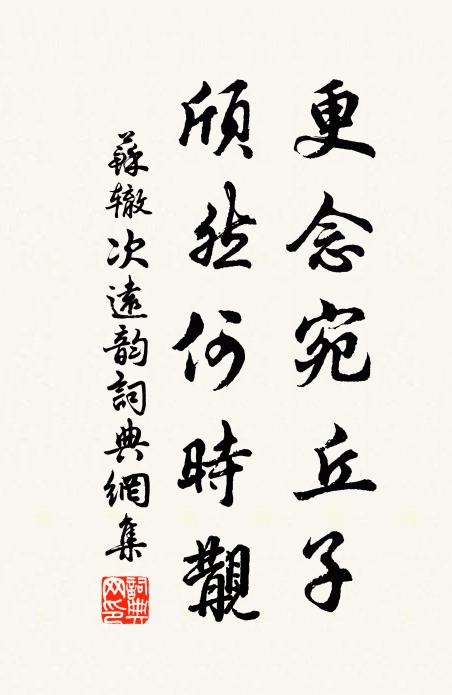 更念宛丘子
頎然何時覯
蘇辙次遠韵詞典網集
詞典网印